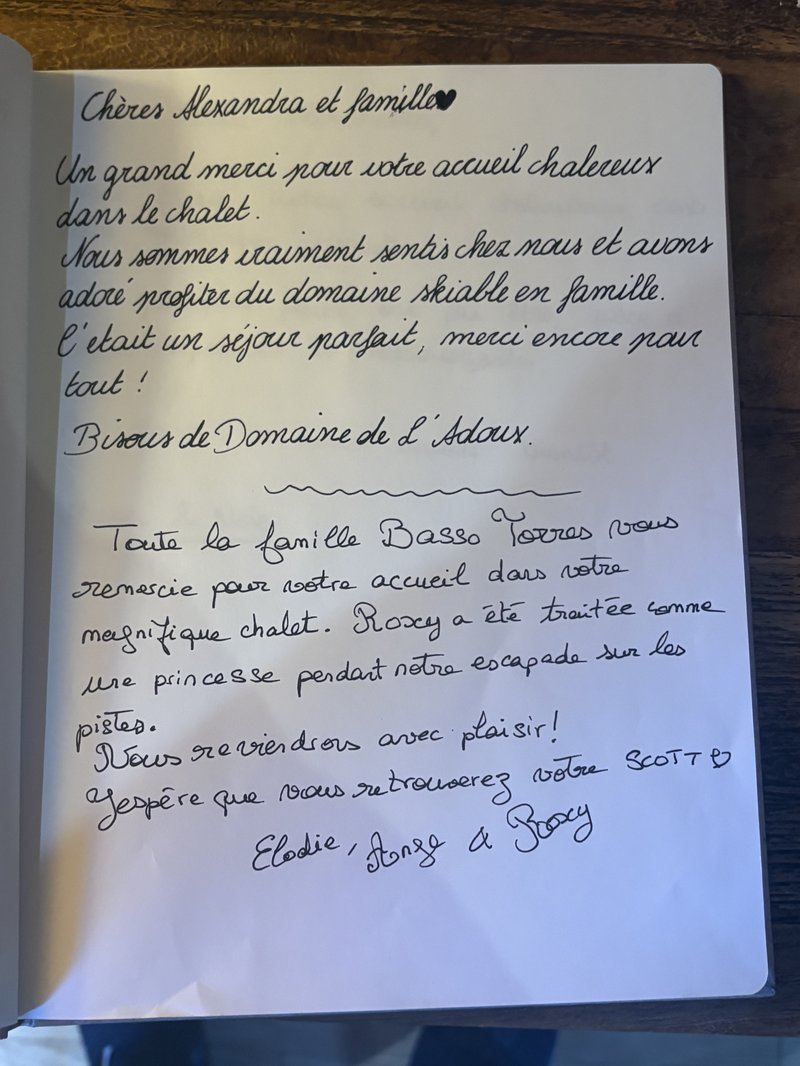 Chères Alexandra et famille♥
Un grand merci pour votre accueil chalereux
dans le chalet.
Nous sommes vraiment sentis chez nous et avons
adoré profiter du domaine skiable en famille.
C'etait un séjour parfait, merci encore pour
tout !
Bisous de Domaine de L'Adoux.
Toute la famille Basso Torres vous
remercie pour votre accueil dans votre
magnifique chalet. Roxy a été traitée comme
une princesse pendant notre escapade sur les
pistes.
Nous reviendrons avec plaisir!
J'espère que vous retrouverez votre SCOTT ♡
Elodie, Ange & Roxy